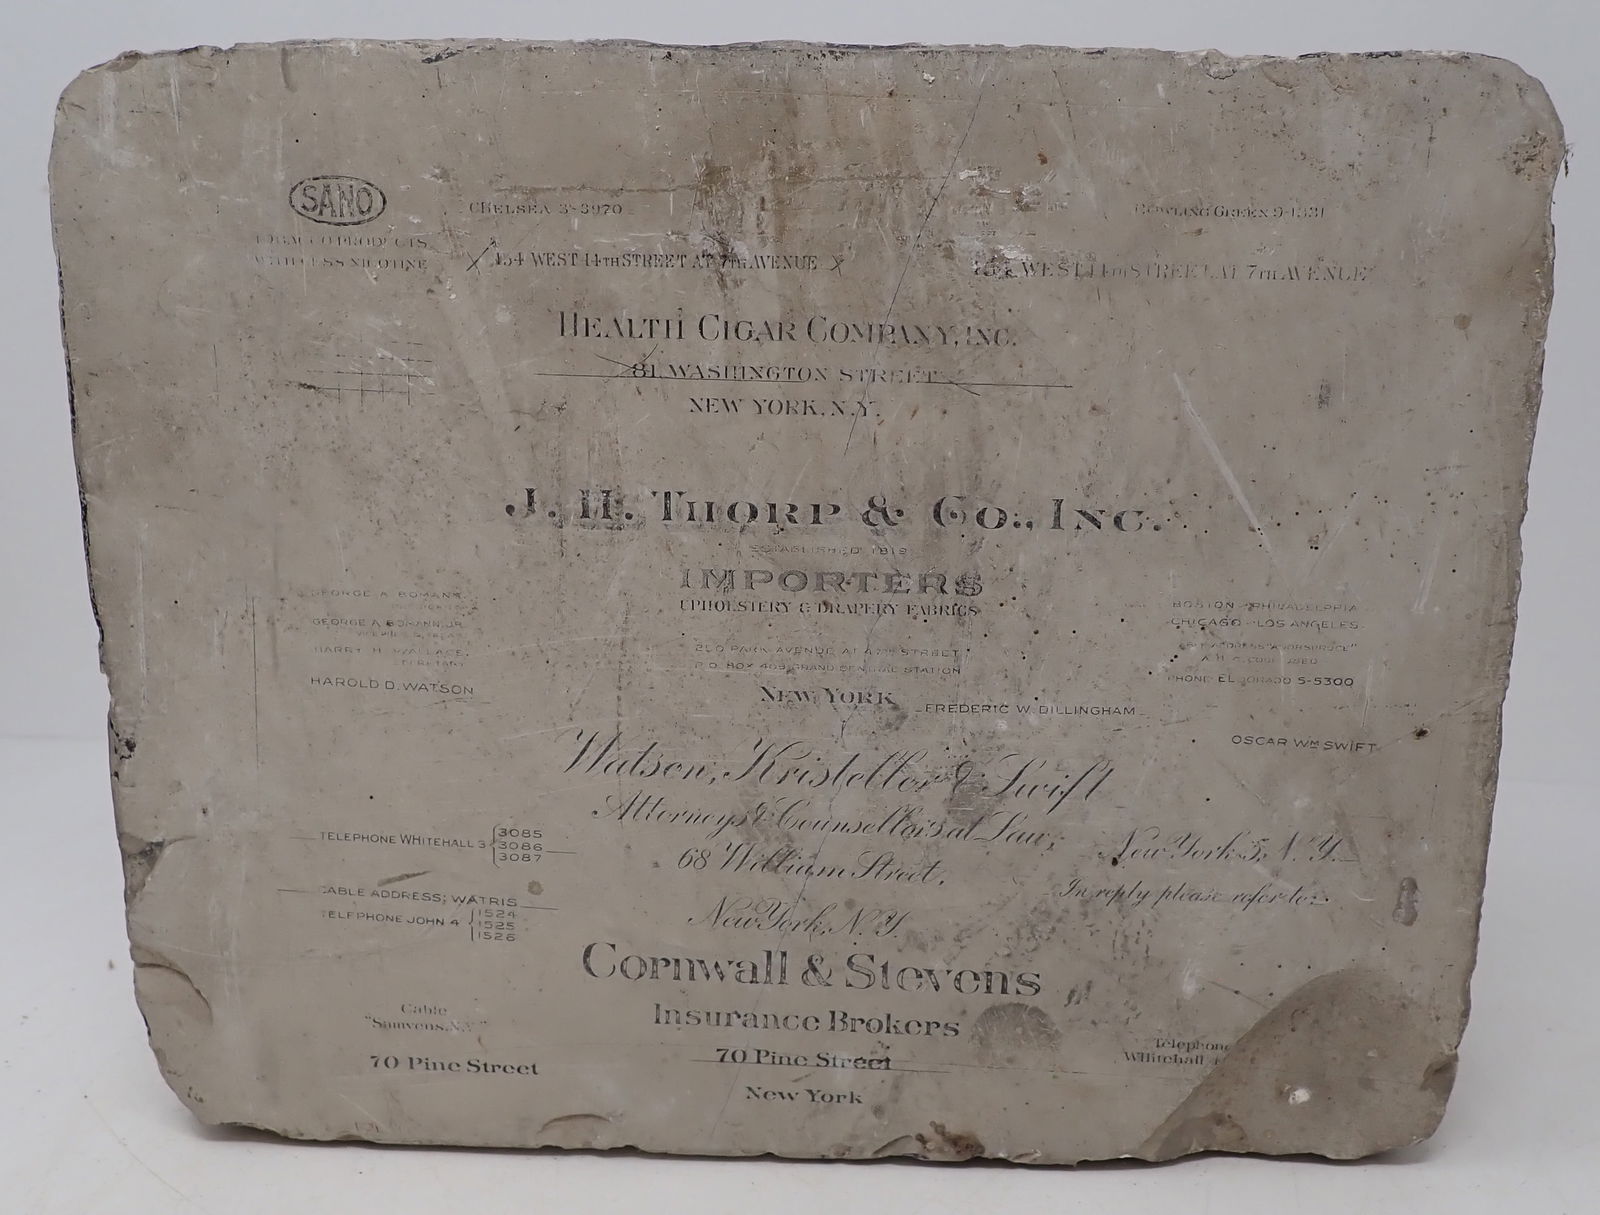 SANO
CHELSEA 3-3970
BOWLING GREEN 9-1331
TOBACCO PRODUCTS
WITH LESS NICOTINE
154 WEST 14TH STREET AT 7TH AVENUE
154 WEST 14TH STREET AT 7TH AVENUE
HEALTH CIGAR COMPANY, INC.
81 WASHINGTON STREET
NEW YORK, N.Y.
J. H. THORP & CO., INC.
ESTABLISHED 1819
IMPORTERS
UPHOLSTERY & DRAPERY FABRICS
GEORGE A BOMANN
GEORGE A BOMANN, JR.
HARRY H. WALLACE,
SECRETARY
HAROLD D. WATSON
BOSTON - PHILADELPHIA
CHICAGO - LOS ANGELES
PARK AVENUE AT 47TH STREET
P.O. BOX 409 GRAND CENTRAL STATION
NEW YORK
PHONE ELDORADO 5-5300
FREDERIC W. DILLINGHAM
OSCAR WM SWIFT
Watson, Kristeller & Swift
Attorneys & Counsellors at Law,
68 William Street,
New York 5, N.Y.
In reply please refer to:
New York, N.Y.
TELEPHONE WHITEHALL 3
3085
3086
3087
CABLE ADDRESS; WATRIS
TELEPHONE JOHN 4
1524
1525
1526
Cornwall & Stevens
Insurance Brokers
70 Pine Street
New York
Cable
70 Pine Street
Telephone
Whitehall